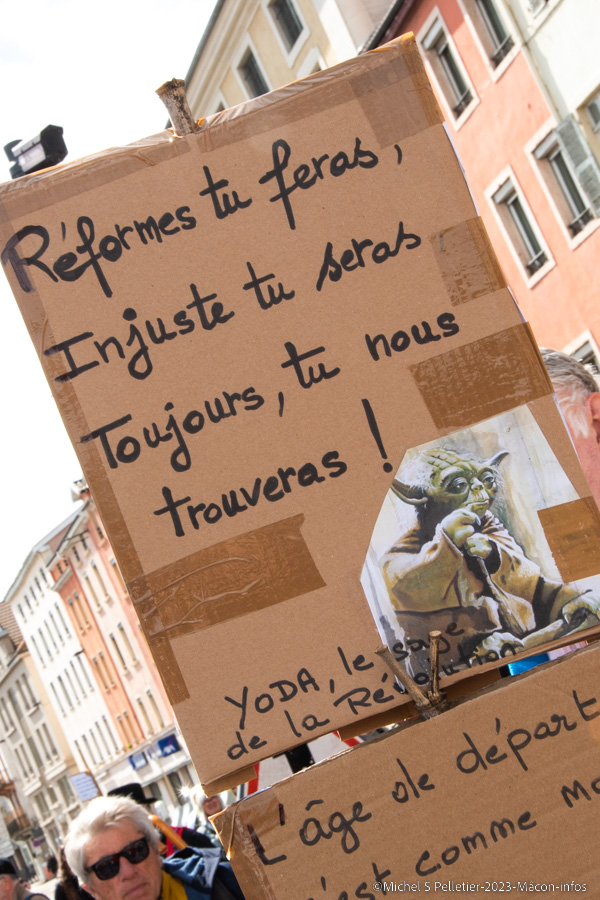 Réformes tu feras,
Injuste tu seras
Toujours, tu nous
trouveras !
YODA, le sage
de la Révolution
L'âge de départ
c'est comme
©Michel S Pelletier-2023-Mâcon-infos